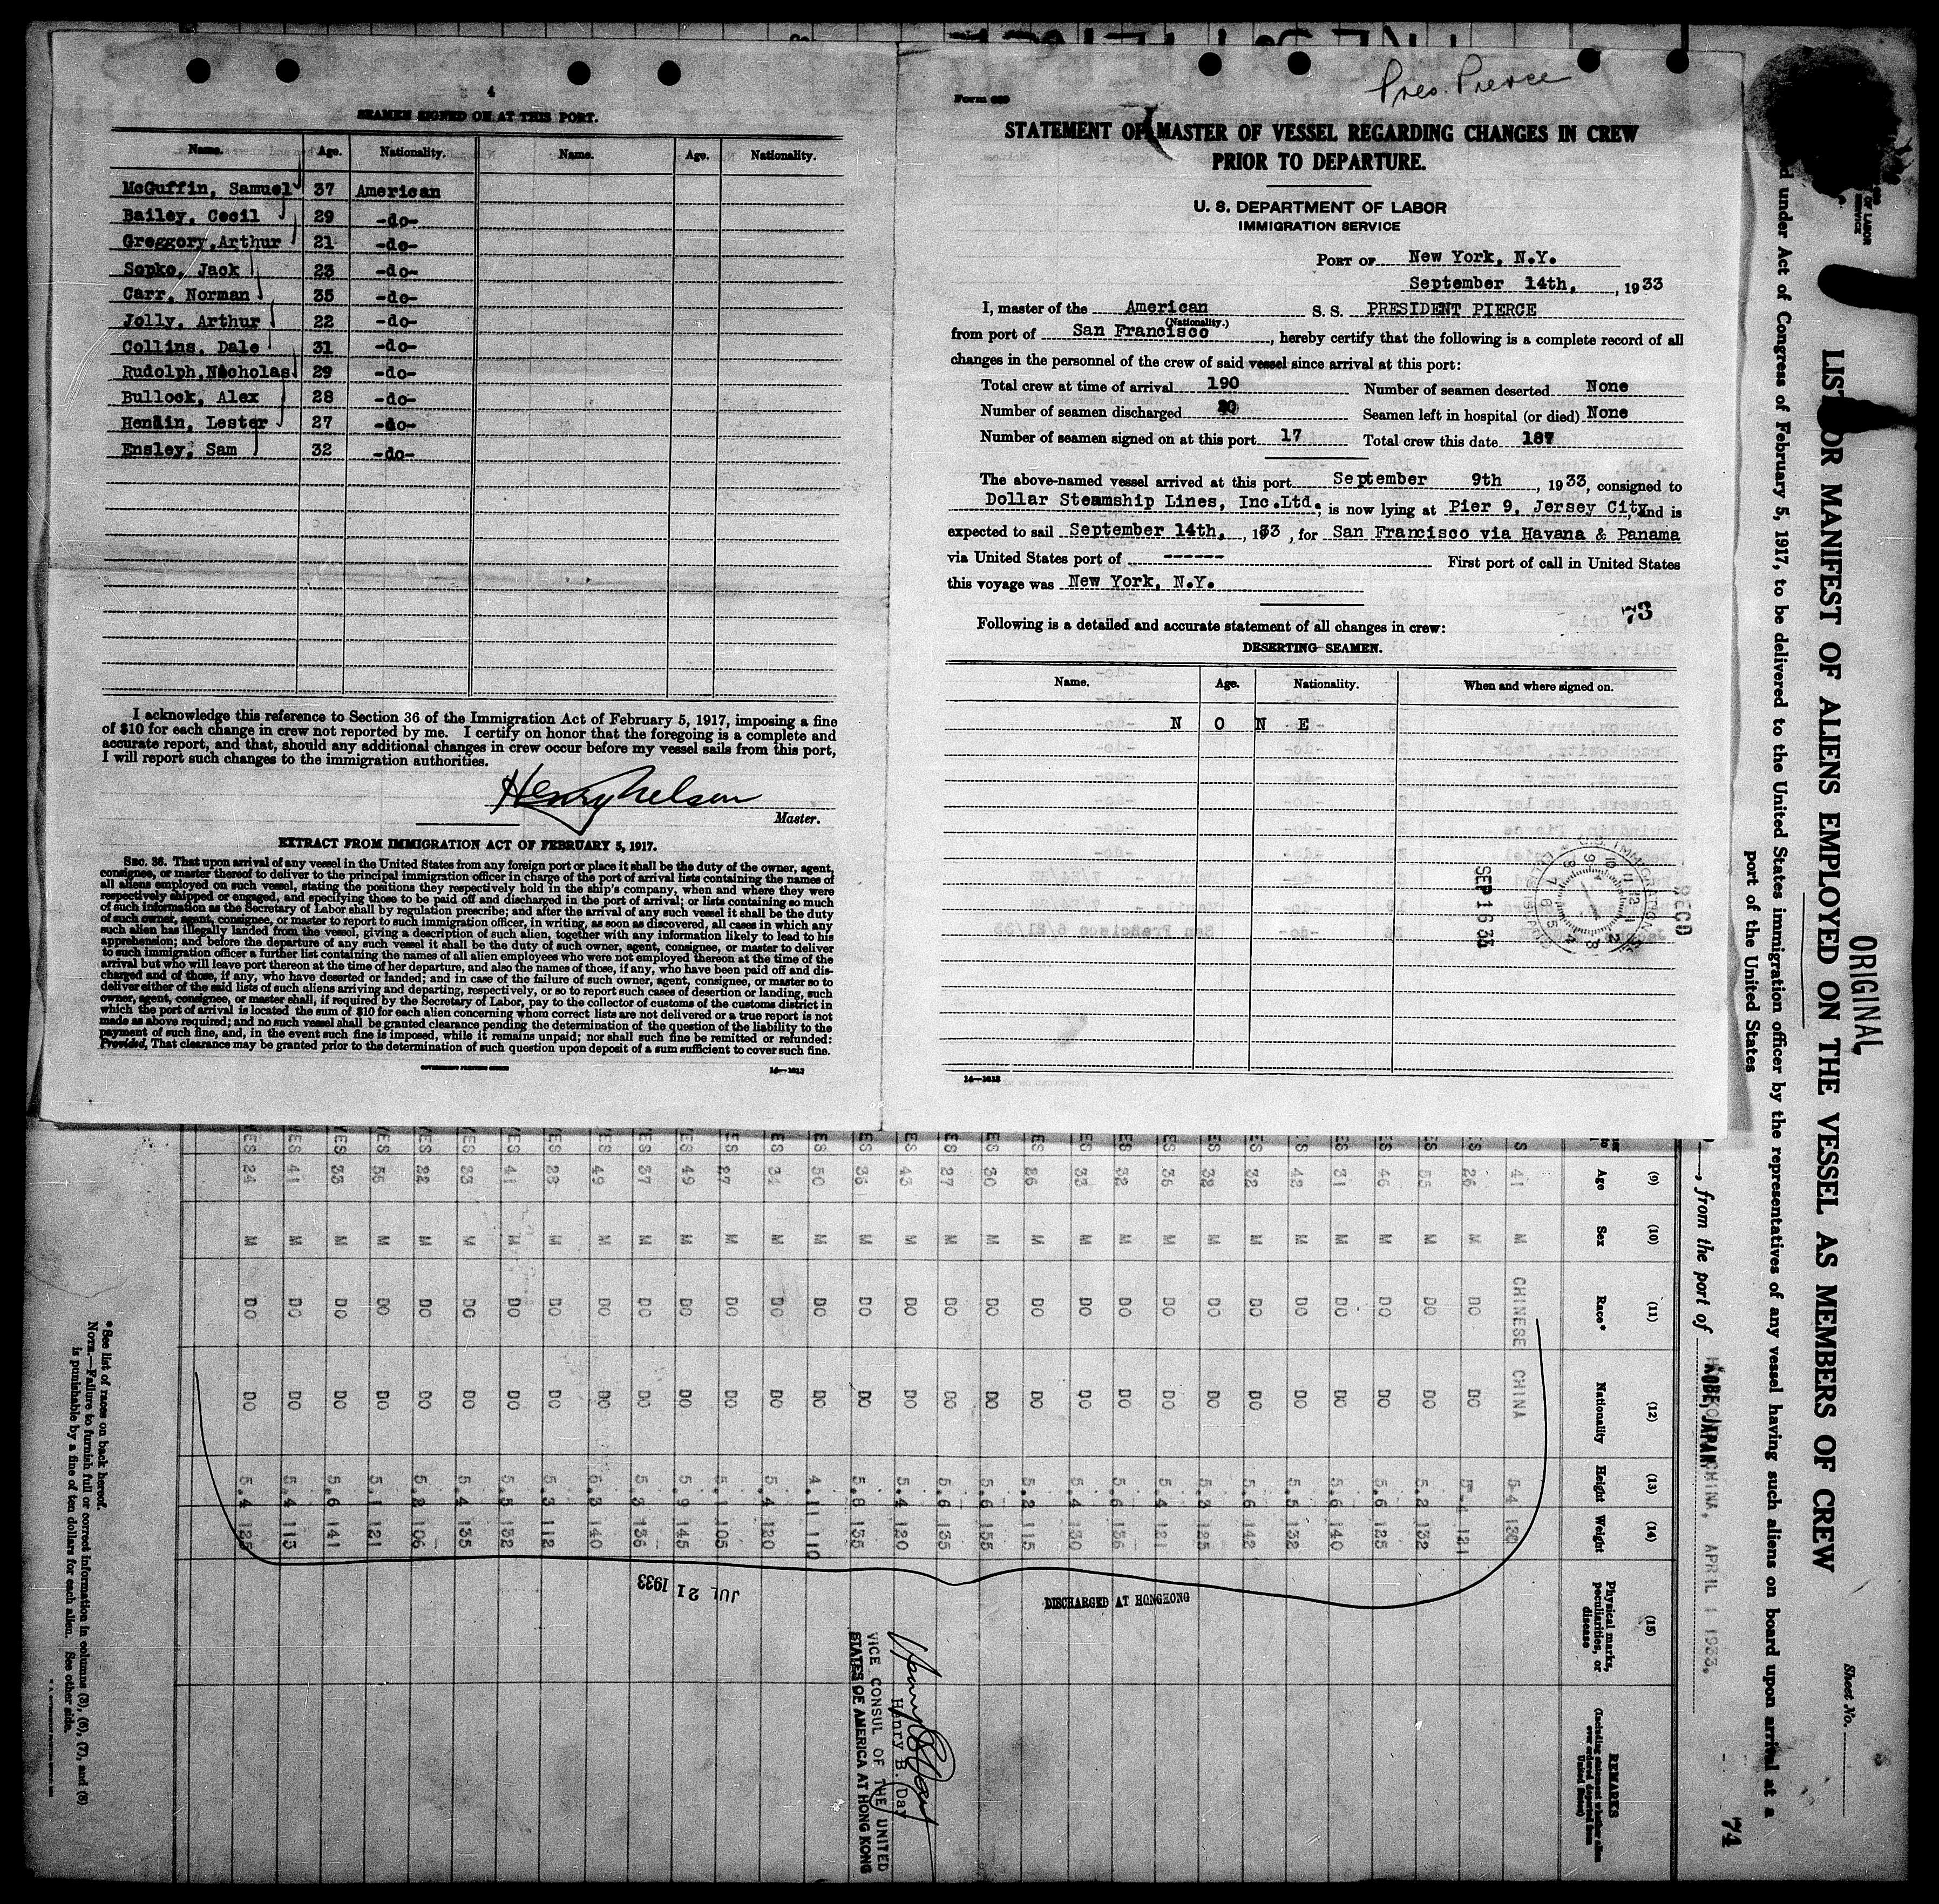 4
SEAMEN SIGNED ON AT THIS PORT.
Name. Age. Nationality. Name. Age. Nationality.
McGuffin, Samuel 37 American
Bailey, Cecil 29 -do-
Greggory,Arthur 21 -do-
Sopko, Jack 23 -do-
Carr, Norman 35 -do-
Jolly, Arthur 22 -do-
Collins, Dale 31 -do-
Rudolph,Nicholas 29 -do-
Bullock, Alex 28 -do-
Lester 27 -do-
Ensley, Sam 32 -do-
I acknowledge this reference to Section 36 of the Immigration Act of February 5, 1917, imposing a fine
of $10 for each change in crew not reported by me. I certify on honor that the foregoing is a complete and
accurate report, and that, should any additional changes in crew occur before my vessel sails from this port,
I will report such changes to the immigration authorities.
Henry Nelson
Master.
EXTRACT FROM IMMIGRATION ACT OF FEBRUARY 5, 1917.
SEC. 36. That upon arrival of any vessel in the United States from any foreign port or place it shall be the duty of the owner, agent,
consignee, or master thereof to deliver to the principal immigration officer in charge of the port of arrival lists containing the names of
all aliens employed on such vessel, stating the positions they respectively hold in the ship's company, when and where they were
respectively shipped or engaged, and specifying those to be paid off and discharged in the port of arrival; or lists containing so much
of such information as the Secretary of Labor shall by regulation prescribe; and after the arrival of any such vessel it shall be the duty
of such owner, agent, consignee, or master to report to such immigration officer, in writing, as soon as discovered, all cases in which any
such alien has illegally landed from the vessel, giving a description of such alien, together with any information likely to lead to his
apprehension; and before the departure of any such vessel it shall be the duty of such owner, agent, consignee, or master to deliver
to such immigration officer a further list containing the names of all alien employees who were not employed thereon at the time of the
arrival but who will leave port thereon at the time of her departure, and also the names of those, if any, who have been paid off and dis-
charged and of those, if any, who have deserted or landed; and in case of the failure of such owner, agent, consignee, or master so to
deliver either of the said lists of such aliens arriving and departing, respectively, or so to report such cases of desertion or landing, such
owner, agent, consignee, or master shall, if required by the Secretary of Labor, pay to the collector of customs of the customs district in
which the port of arrival is located the sum of $10 for each alien concerning whom correct lists are not delivered or a true report is not
made as above required; and no such vessel shall be granted clearance pending the determination of the question of the liability to the
payment of such fine, and, in the event such fine is imposed, while it remains unpaid; nor shall such fine be remitted or refunded:
Provided, That clearance may be granted prior to the determination of such question upon deposit of a sum sufficient to cover such fine.
GOVERNMENT PRINTING OFFICE 14—1613
Pres. Pierce
Form
STATEMENT OF MASTER OF VESSEL REGARDING CHANGES IN CREW
PRIOR TO DEPARTURE.
U. S. DEPARTMENT OF LABOR
IMMIGRATION SERVICE
PORT OF New York, N.Y.
September 14th, , 1933
I, master of the American S. S. PRESIDENT PIERCE
(Nationality.)
from port of San Francisco, hereby certify that the following is a complete record of all
changes in the personnel of the crew of said vessel since arrival at this port:
Total crew at time of arrival 190 Number of seamen deserted None
Number of seamen discharged 20 Seamen left in hospital (or died) None
Number of seamen signed on at this port 17 Total crew this date 187
The above-named vessel arrived at this port September 9th , 1933, consigned to
Dollar Steamship Lines, Inc.Ltd., is now lying at Pier 9, Jersey City, and is
expected to sail September 14th, , 1933 , for San Francisco via Havana & Panama
via United States port of ------ First port of call in United States
this voyage was New York, N.Y.
73
Following is a detailed and accurate statement of all changes in crew:
DESERTING SEAMEN.
Name. Age. Nationality. When and where signed on.
N O N E
RECD
SEP 16 33
14—1613
ORIGINAL
Sheet No.
LIST OR MANIFEST OF ALIENS EMPLOYED ON THE VESSEL AS MEMBERS OF CREW
under Act of Congress of February 5, 1917, to be delivered to the United States immigration officer by the representatives of any vessel having such aliens on board upon arrival at a
port of the United States
, from the port of KOBE, JAPAN CHINA, APRIL 1 1933.
74
(9) (10) (11) (12) (13) (14) (15)
Age Sex Race* Nationality Height Weight Physical marks, peculiarities, or disease REMARKS
(Including statement whether alien ever ordered deported from United States)
41 M CHINESE CHINA 5-4 130
26 M DO DO 5-4 121
55 M DO DO 5.2 132
46 M DO DO 5.6 125
31 M DO DO 5.6 140
42 M DO DO 5.5 132
32 M DO DO 5.6 142
32 M DO DO 5.3 125
36 M DO DO 5.4 121
32 M DO DO 5.6 156
33 M DO DO 5.4 130
26 M DO DO 5.2 115
30 M DO DO 5.6 155
27 M DO DO 5.6 135
43 M DO DO 5.4 120
36 M DO DO 5.8 135
50 M DO DO 4.11 110
34 M DO DO 5.4 120
27 M DO DO 5.1 105
49 M DO DO 5.9 145
37 M DO DO 5.3 136
49 M DO DO 5.3 140
28 M DO DO 5.3 112
41 M DO DO 5.5 132
23 M DO DO 5.4 135
22 M DO DO 5.2 106
56 M DO DO 5.1 121
33 M DO DO 5.6 141
41 M DO DO 5.4 113
24 M DO DO 5.4 125
DISCHARGED AT HONGKONG
JUL 21 1933
Henry B. Day
Henry B. Day
VICE CONSUL OF THE UNITED
STATES OF AMERICA AT HONG KONG
*See list of races on back hereof.
NOTE.—Failure to furnish full or correct information in columns (3), (6), (7), and (8)
is punishable by a fine of ten dollars for each alien. See other side.